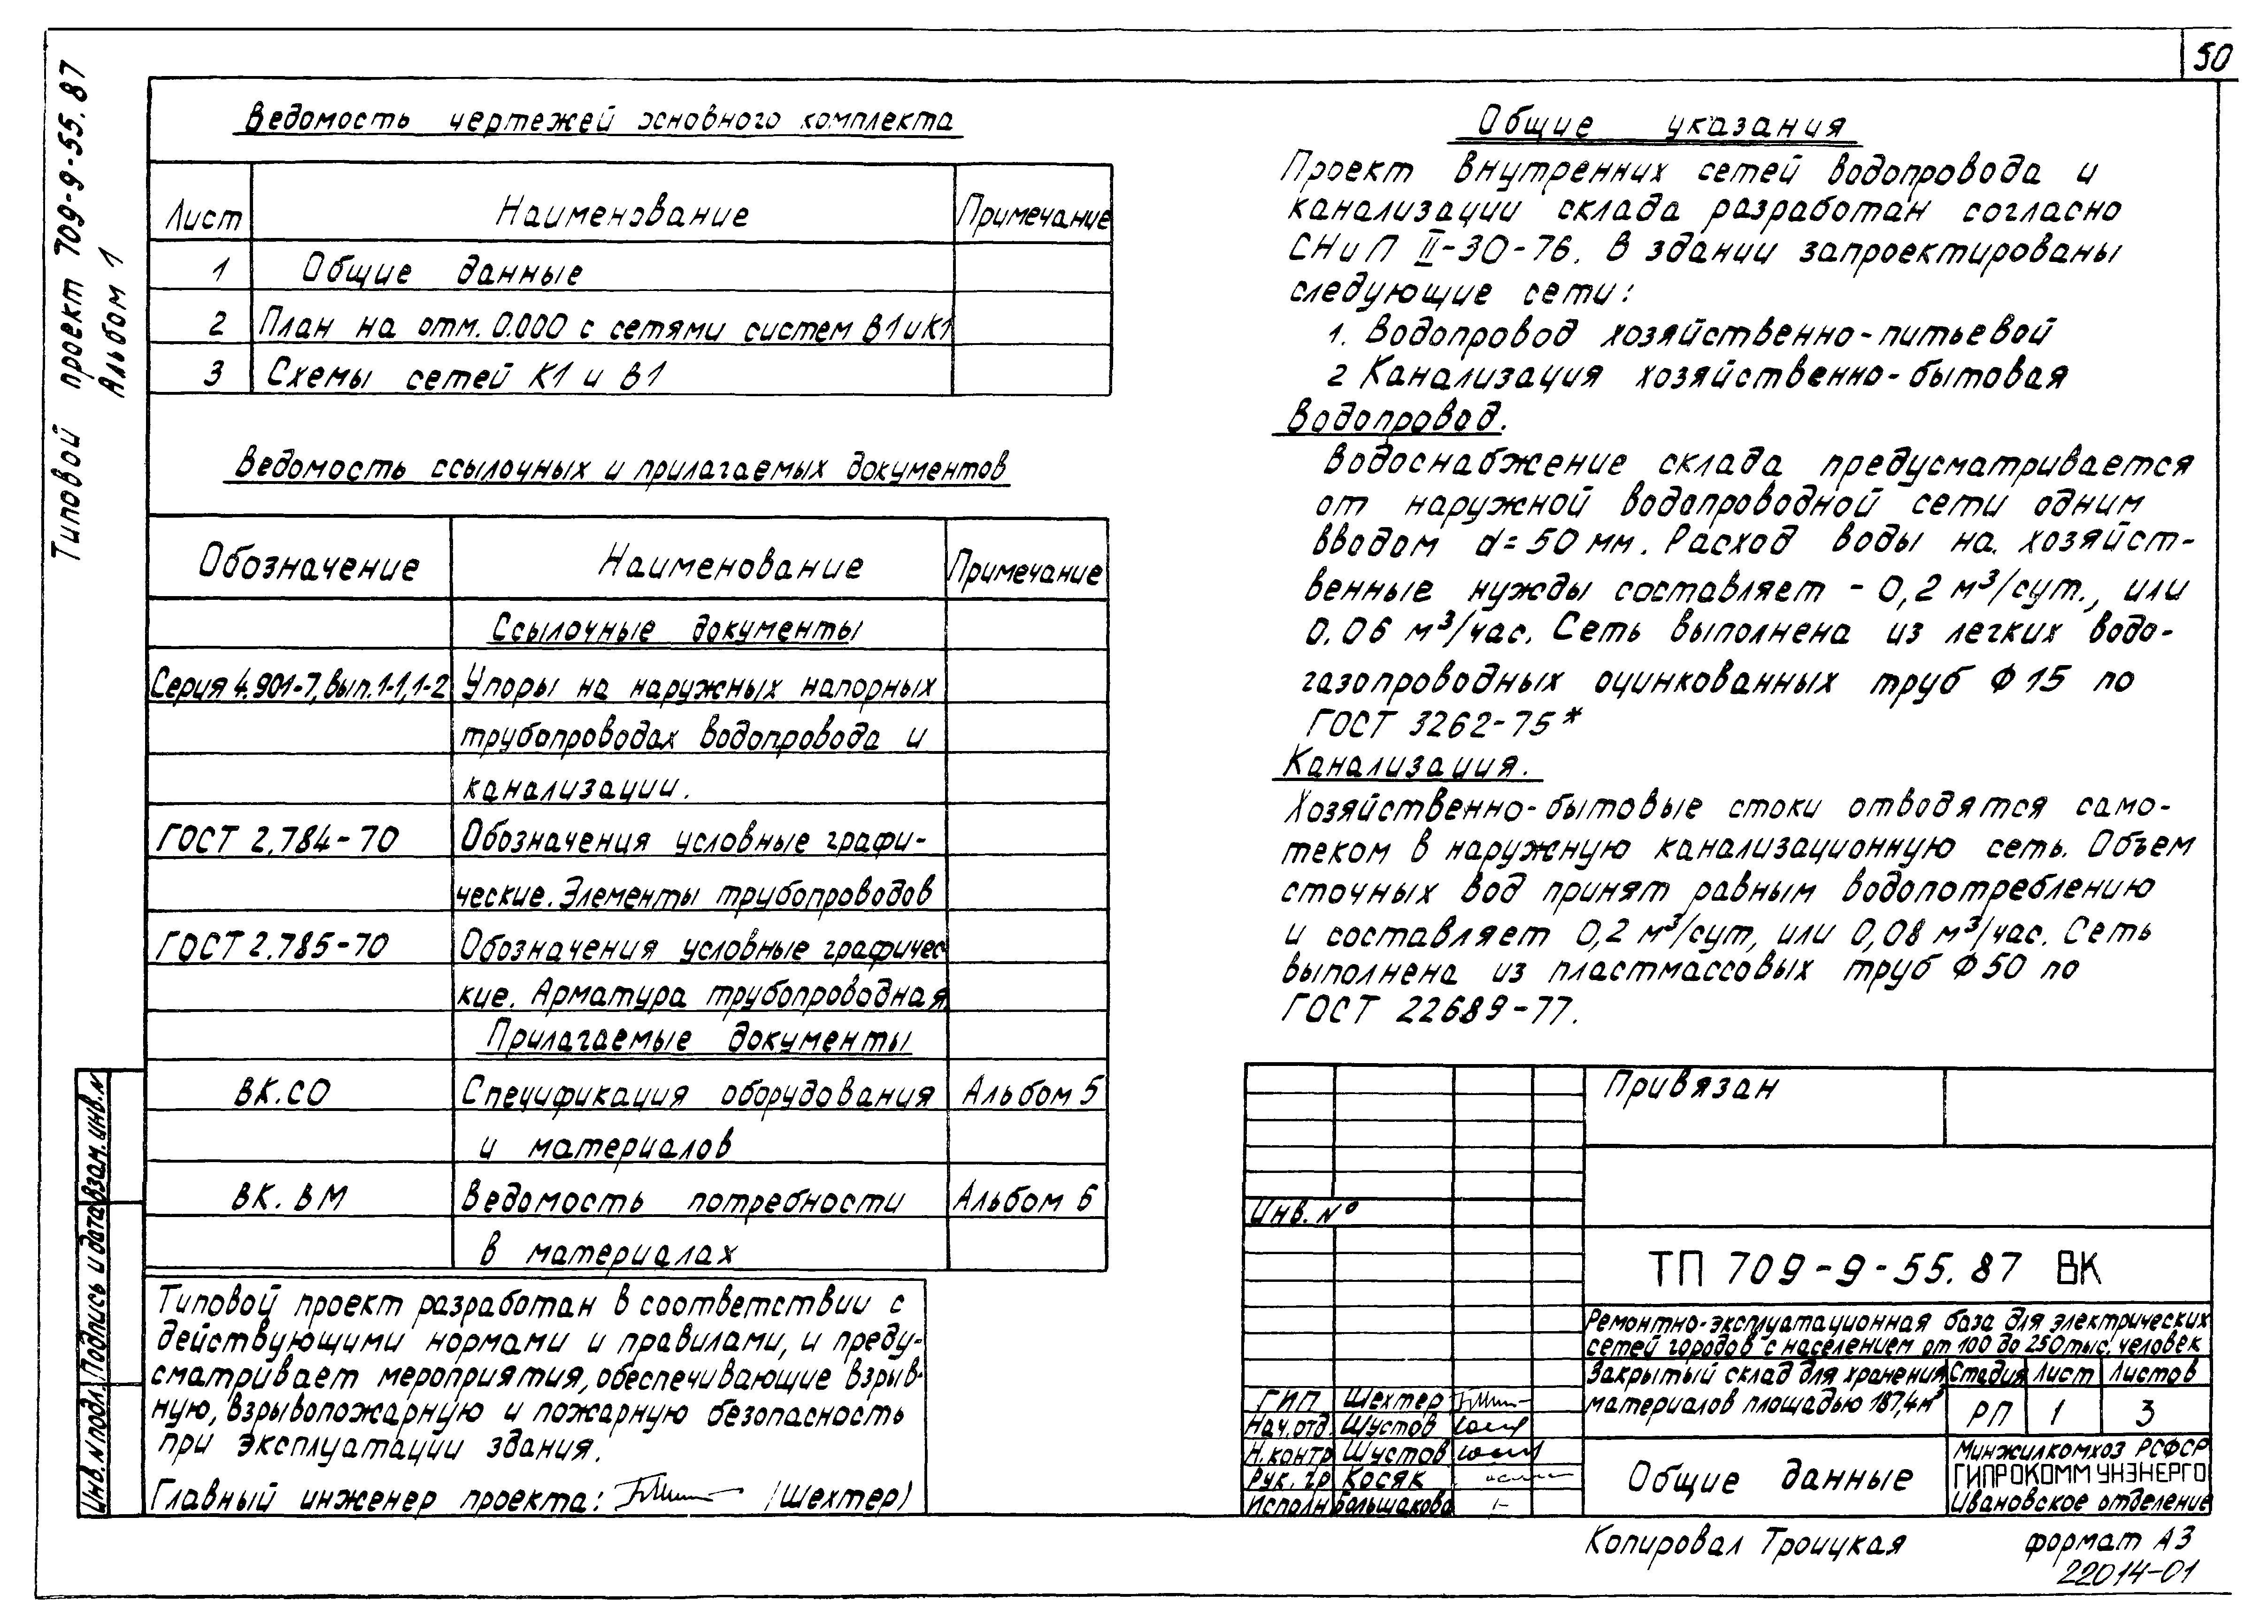 50
Типовой проект 709-9-55.87
Альбом 1
Ведомость чертежей основного комплекта
Лист Наименование Примечание
1 Общие данные
2 План на отм. 0.000 с сетями систем В1 и К1
3 Схемы сетей К1 и В1
Ведомость ссылочных и прилагаемых документов
Обозначение Наименование Примечание
Ссылочные документы
Серия 4.901-7, вып.1-1, 1-2 Упоры на наружных напорных
трубопроводах водопровода и
канализации.
ГОСТ 2.784-70 Обозначения условные графи-
ческие. Элементы трубопроводов
ГОСТ 2.785-70 Обозначения условные графичес-
кие. Арматура трубопроводная.
Прилагаемые документы
ВК.СО Спецификация оборудования Альбом 5
и материалов
ВК.ВМ Ведомость потребности Альбом 6
в материалах
Типовой проект разработан в соответствии с
действующими нормами и правилами, и преду-
сматривает мероприятия, обеспечивающие взрыв-
ную, взрывопожарную и пожарную безопасность
при эксплуатации здания.
Главный инженер проекта: (Шехтер)
Взам. инв. №
Подпись и дата
Инв. № подл.
Общие указания
Проект внутренних сетей водопровода и
канализации склада разработан согласно
СНиП II-30-76. В здании запроектированы
следующие сети:
1. Водопровод хозяйственно-питьевой
2 Канализация хозяйственно-бытовая
Водопровод.
Водоснабжение склада предусматривается
от наружной водопроводной сети одним
вводом d=50 мм. Расход воды на хозяйст-
венные нужды составляет - 0,2 м³/сут., или
0.06 м³/час. Сеть выполнена из легких водо-
газопроводных оцинкованных труб Ф 15 по
ГОСТ 3262-75*
Канализация.
Хозяйственно-бытовые стоки отводятся само-
теком в наружную канализационную сеть. Объем
сточных вод принят равным водопотреблению
и составляет 0,2 м³/сут, или 0,08 м³/час. Сеть
выполнена из пластмассовых труб Ф 50 по
ГОСТ 22689-77.
Привязан
Инв. №
ТП 709-9-55.87 ВК
Ремонтно-эксплуатационная база для электрических
сетей городов с населением от 100 до 250 тыс. человек
Закрытый склад для хранения
материалов площадью 187,4м²
Стадия Лист Листов
РП 1 3
ГИП Шехтер
Нач.отд. Шустов
Н.контр Шустов
Рук. гр Косяк
Исполн Большакова
Общие данные
Минжилкомхоз РСФСР
ГИПРОКОММУНЭНЕРГО
Ивановское отделение
Копировал Троицкая формат А3
22014-01